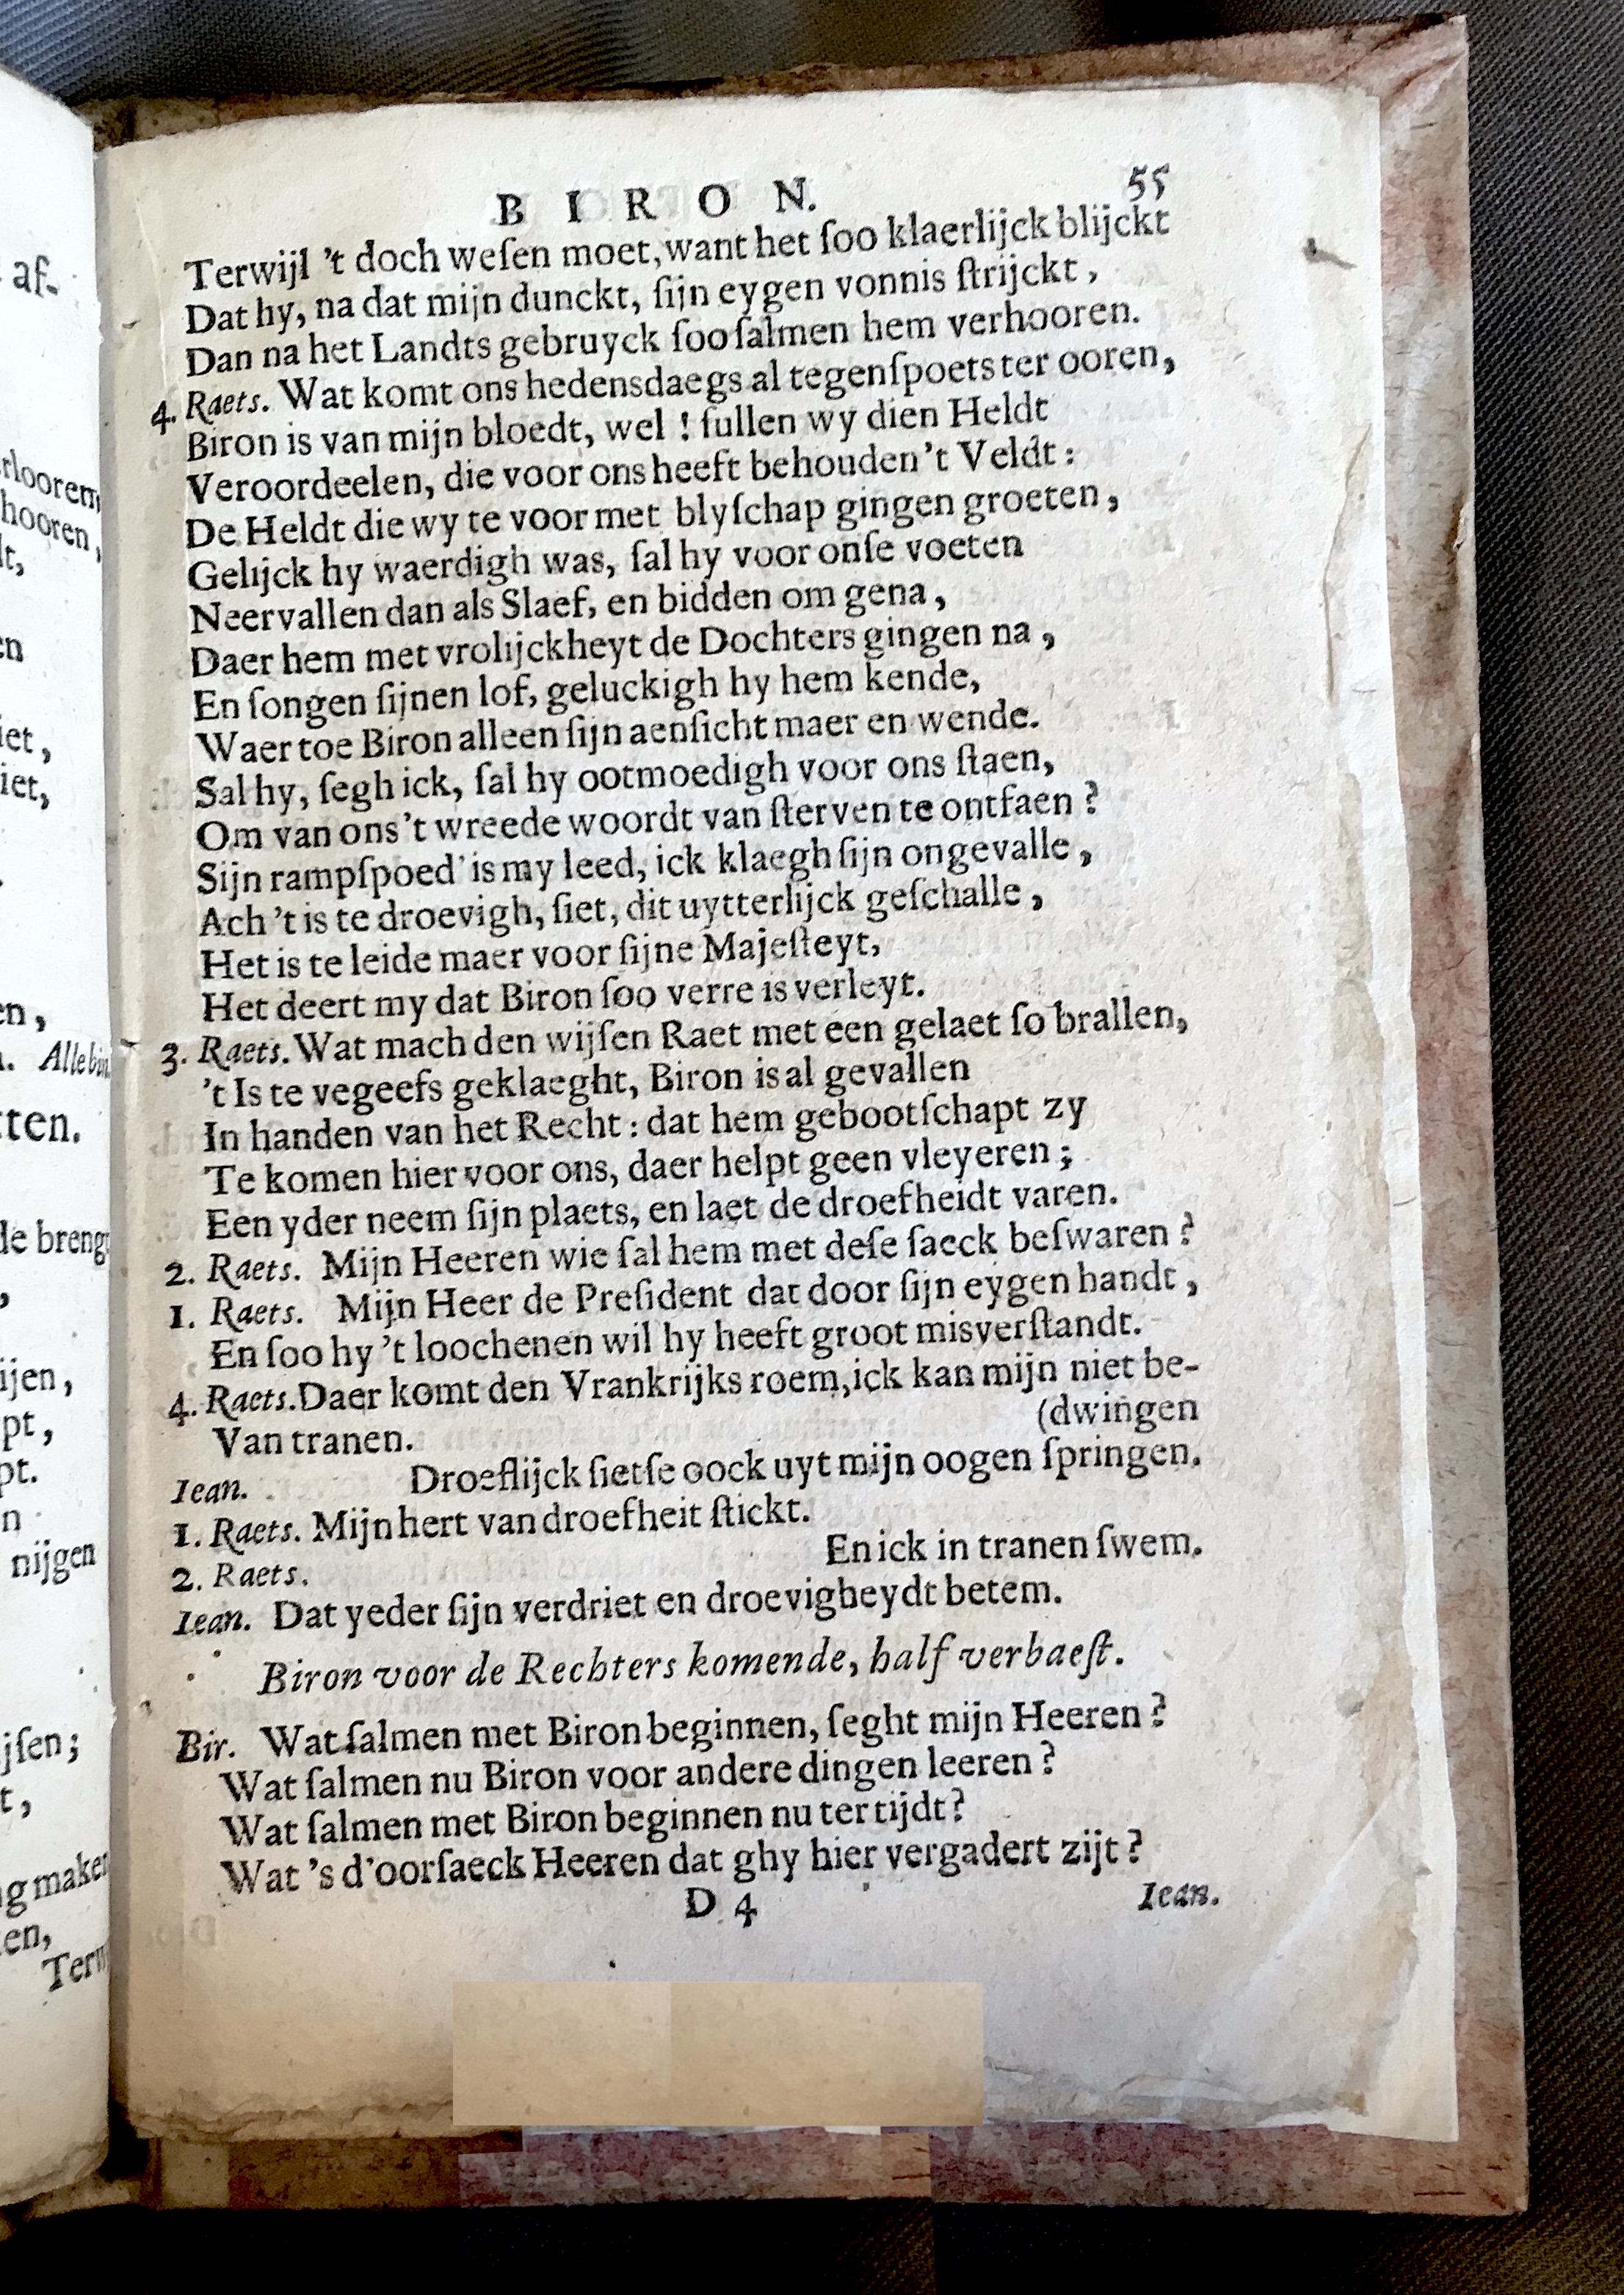 BIRON. 55
Terwijl 't doch weſen moet, want het ſoo klaerlijck blijckt
Dat hy, na dat mijn dunckt, ſijn eygen vonnis ſtrijckt,
Dan na het Landts gebruyck ſoo ſalmen hem verhooren.
4. Raets. Wat komt ons hedensdaegs al tegenſpoets ter ooren,
Biron is van mijn bloedt, wel! ſullen wy dien Heldt
Veroordeelen, die voor ons heeft behouden 't Veldt:
De Heldt die wy te voor met blyſchap gingen groeten,
Gelijck hy waerdigh was, ſal hy voor onſe voeten
Neervallen dan als Slaef, en bidden om gena,
Daer hem met vrolijckheyt de Dochters gingen na,
En ſongen ſijnen lof, geluckigh hy hem kende,
Waer toe Biron alleen ſijn aenſicht maer en wende.
Sal hy, ſegh ick, ſal hy ootmoedigh voor ons ſtaen,
Om van ons 't wreede woordt van ſterven te ontfaen?
Sijn rampſpoed' is my leed, ick klaegh ſijn ongevalle,
Ach 't is te droevigh, ſiet, dit uytterlijck geſchalle,
Het is te leide maer voor ſijne Majeſteyt,
Het deert my dat Biron ſoo verre is verleyt.
3. Raets. Wat mach den wijſen Raet met een gelaet ſo brallen,
't Is te vegeefs geklaeght, Biron is al gevallen
In handen van het Recht: dat hem gebootſchapt zy
Te komen hier voor ons, daer helpt geen vleyeren;
Een yder neem ſijn plaets, en laet de droefheidt varen.
2. Raets. Mijn Heeren wie ſal hem met deſe ſaeck beſwaren?
1. Raets. Mijn Heer de Preſident dat door ſijn eygen handt,
En ſoo hy 't loochenen wil hy heeft groot misverſtandt.
4. Raets. Daer komt den Vrankrijks roem, ick kan mijn niet be-
(dwingen
Van tranen.
Iean. Droeflijck ſietſe oock uyt mijn oogen ſpringen.
1. Raets. Mijn hert van droefheit ſtickt.
2. Raets. En ick in tranen ſwem.
Iean. Dat yeder ſijn verdriet en droevigheydt betem.
Biron voor de Rechters komende, half verbaeſt.
Bir. Wat ſalmen met Biron beginnen, ſeght mijn Heeren?
Wat ſalmen nu Biron voor andere dingen leeren?
Wat ſalmen met Biron beginnen nu ter tijdt?
Wat 's d'oorſaeck Heeren dat ghy hier vergadert zijt?
D 4 Iean.